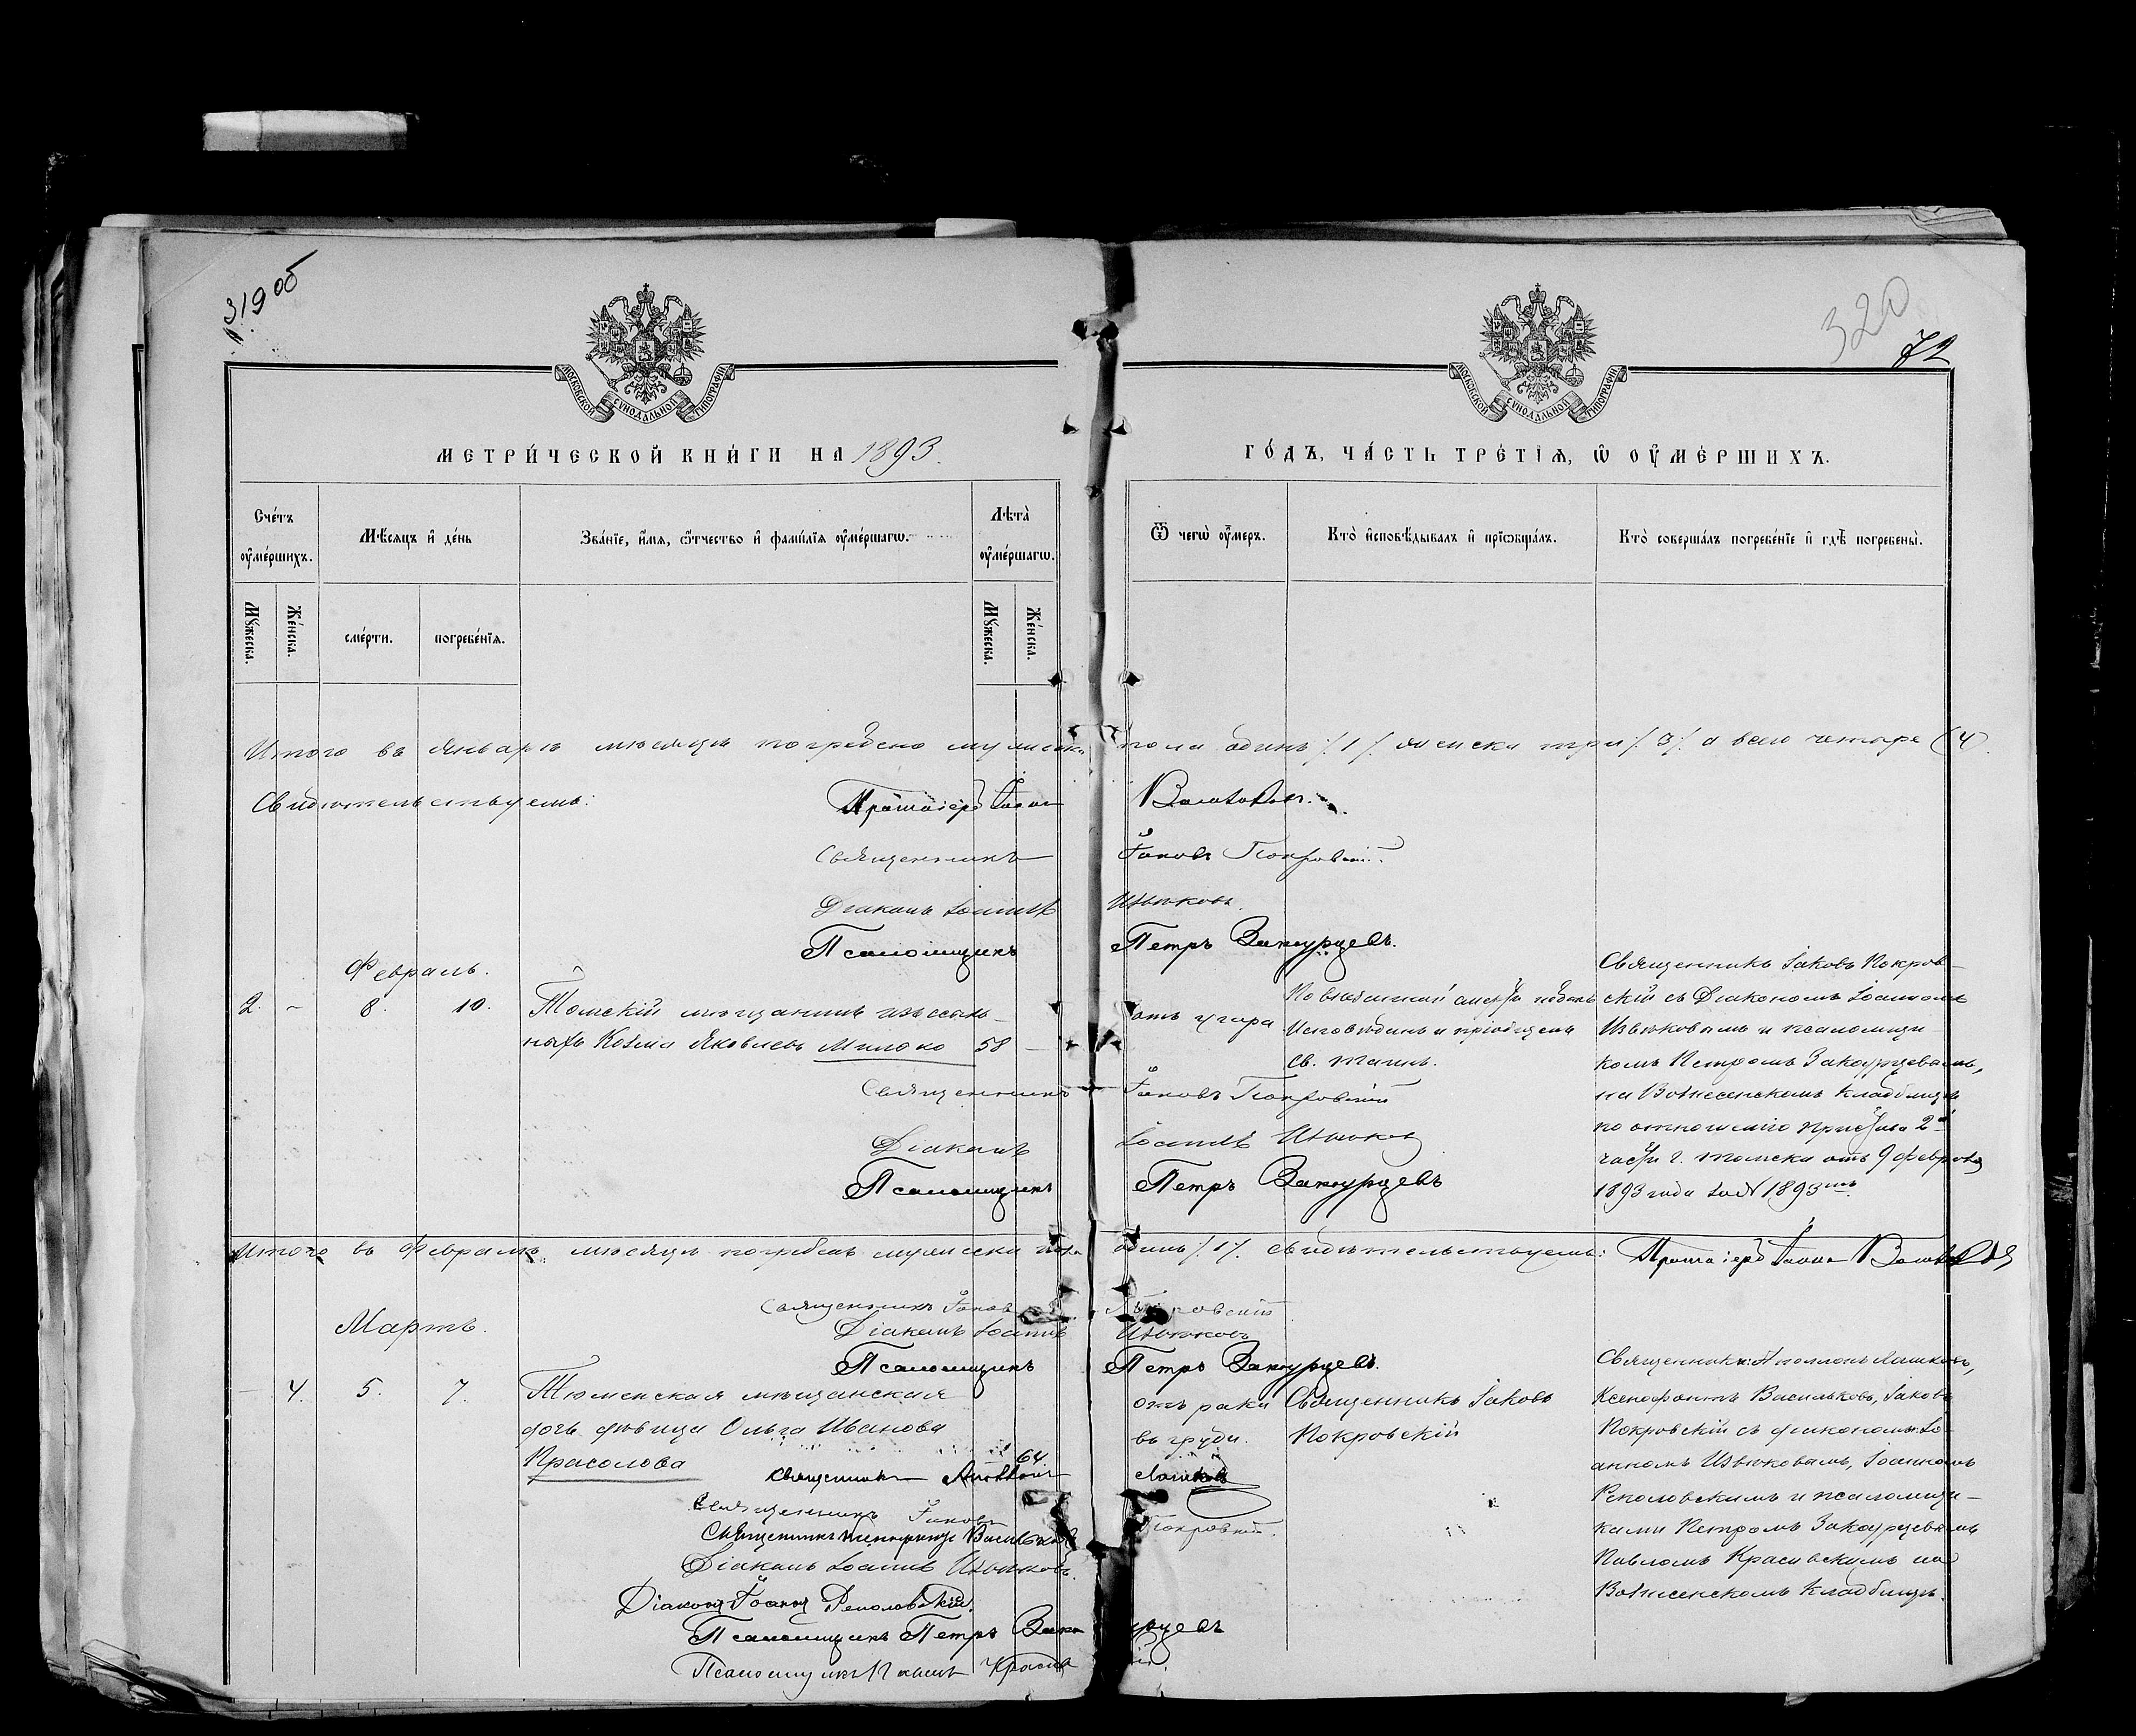 319 об
320
72
МОСКОВСКОЙ СѴНОДАЛЬНОЙ ТИПОГРАФІИ
МОСКОВСКОЙ СѴНОДАЛЬНОЙ ТИПОГРАФІИ
МЕТРИ́ЧЕСКОЙ КНИ́ГИ НА 1893.
ГО́ДЪ, ЧА́СТЬ ТРЕ́ТІѦ, Ѡ ОУ҆МЕ́РШИХЪ.
Сче́тъ оу҆ме́ршихъ.
Мѣ́сѧцъ и҆ де́нь
Зва́нїе, и҆́мѧ, ѻ҆́тчество и҆ фами́лїѧ оу҆ме́ршагѡ.
Лѣ́та оу҆ме́ршагѡ.
Ѿ чегѡ̀ оу҆́меръ.
Кто̀ и҆сповѣ́дывалъ и҆ прїѡбща́лъ.
Кто̀ соверша́лъ погребе́нїе и҆ гдѣ̀ погребены̀.
Мꙋ́жеска.
Же́нска.
сме́рти.
погребе́нїѧ.
Мꙋ́жеска.
Же́нска.
Итого въ Январѣ мѣсяцѣ погребено мужеска пола одинъ /1/ женска три /3/ а всего четыре (4)
Свидѣтельствуемъ: Протоіерей
Священникъ Іаковъ Покровскій.
Діаконъ Іоаннъ Извѣковъ.
Псаломщикъ Петръ Закурцевъ.
Февраль.
2. – 8. 10. Томскій мѣщанинъ изъ ссыль-
ныхъ Козма Яковлевъ Милоко 58 –
отъ угара
Исповѣданъ и пріобщенъ
св. таинъ.
Священникъ Іаковъ Покров-
скій съ Діакономъ Іоанномъ
Извѣковымъ и псаломщи-
комъ Петромъ Закурцевымъ,
на Вознесенскомъ кладбищѣ
по отношенію Пристава 2й
части г. Томска отъ 9 Февраля
1893 года за № 1893
Священникъ Іаковъ Покровскій
Діаконъ Іоаннъ Извѣковъ
Псаломщикъ Петръ Закурцевъ
Итого въ Февралѣ мѣсяцѣ погребенъ мужеска пола одинъ /1/. свидѣтельствуемъ: Протоіерей
Священникъ Іаковъ Покровскій
Діаконъ Іоаннъ Извѣковъ
Псаломщикъ Петръ Закурцевъ.
Мартъ.
– 4. 5. 7. Тюменская мѣщанская
дочь дѣвица Ольга Иванова
Красолова 64.
отъ рака
въ груди.
Священникъ Іаковъ
Покровскій
Священники: Аполлонъ Лашковъ,
Ксенофонтъ Васильковъ, Іаковъ
Покровскій съ діакономъ Іо-
анномъ Извѣковымъ, Іоанномъ
Реполовскимъ и псаломщи-
ками Петромъ Закурцевымъ
Павломъ Красивскимъ на
Вознесенскомъ кладбищѣ.
Священникъ Аполлонъ Лашковъ
Священникъ Іаковъ Покровскій.
Священникъ Ксенофонтъ Васильковъ
Діаконъ Іоаннъ Извѣковъ.
Діаконъ Іоаннъ Реполовскій.
Псаломщикъ Петръ Закурцевъ
Псаломщикъ Павелъ